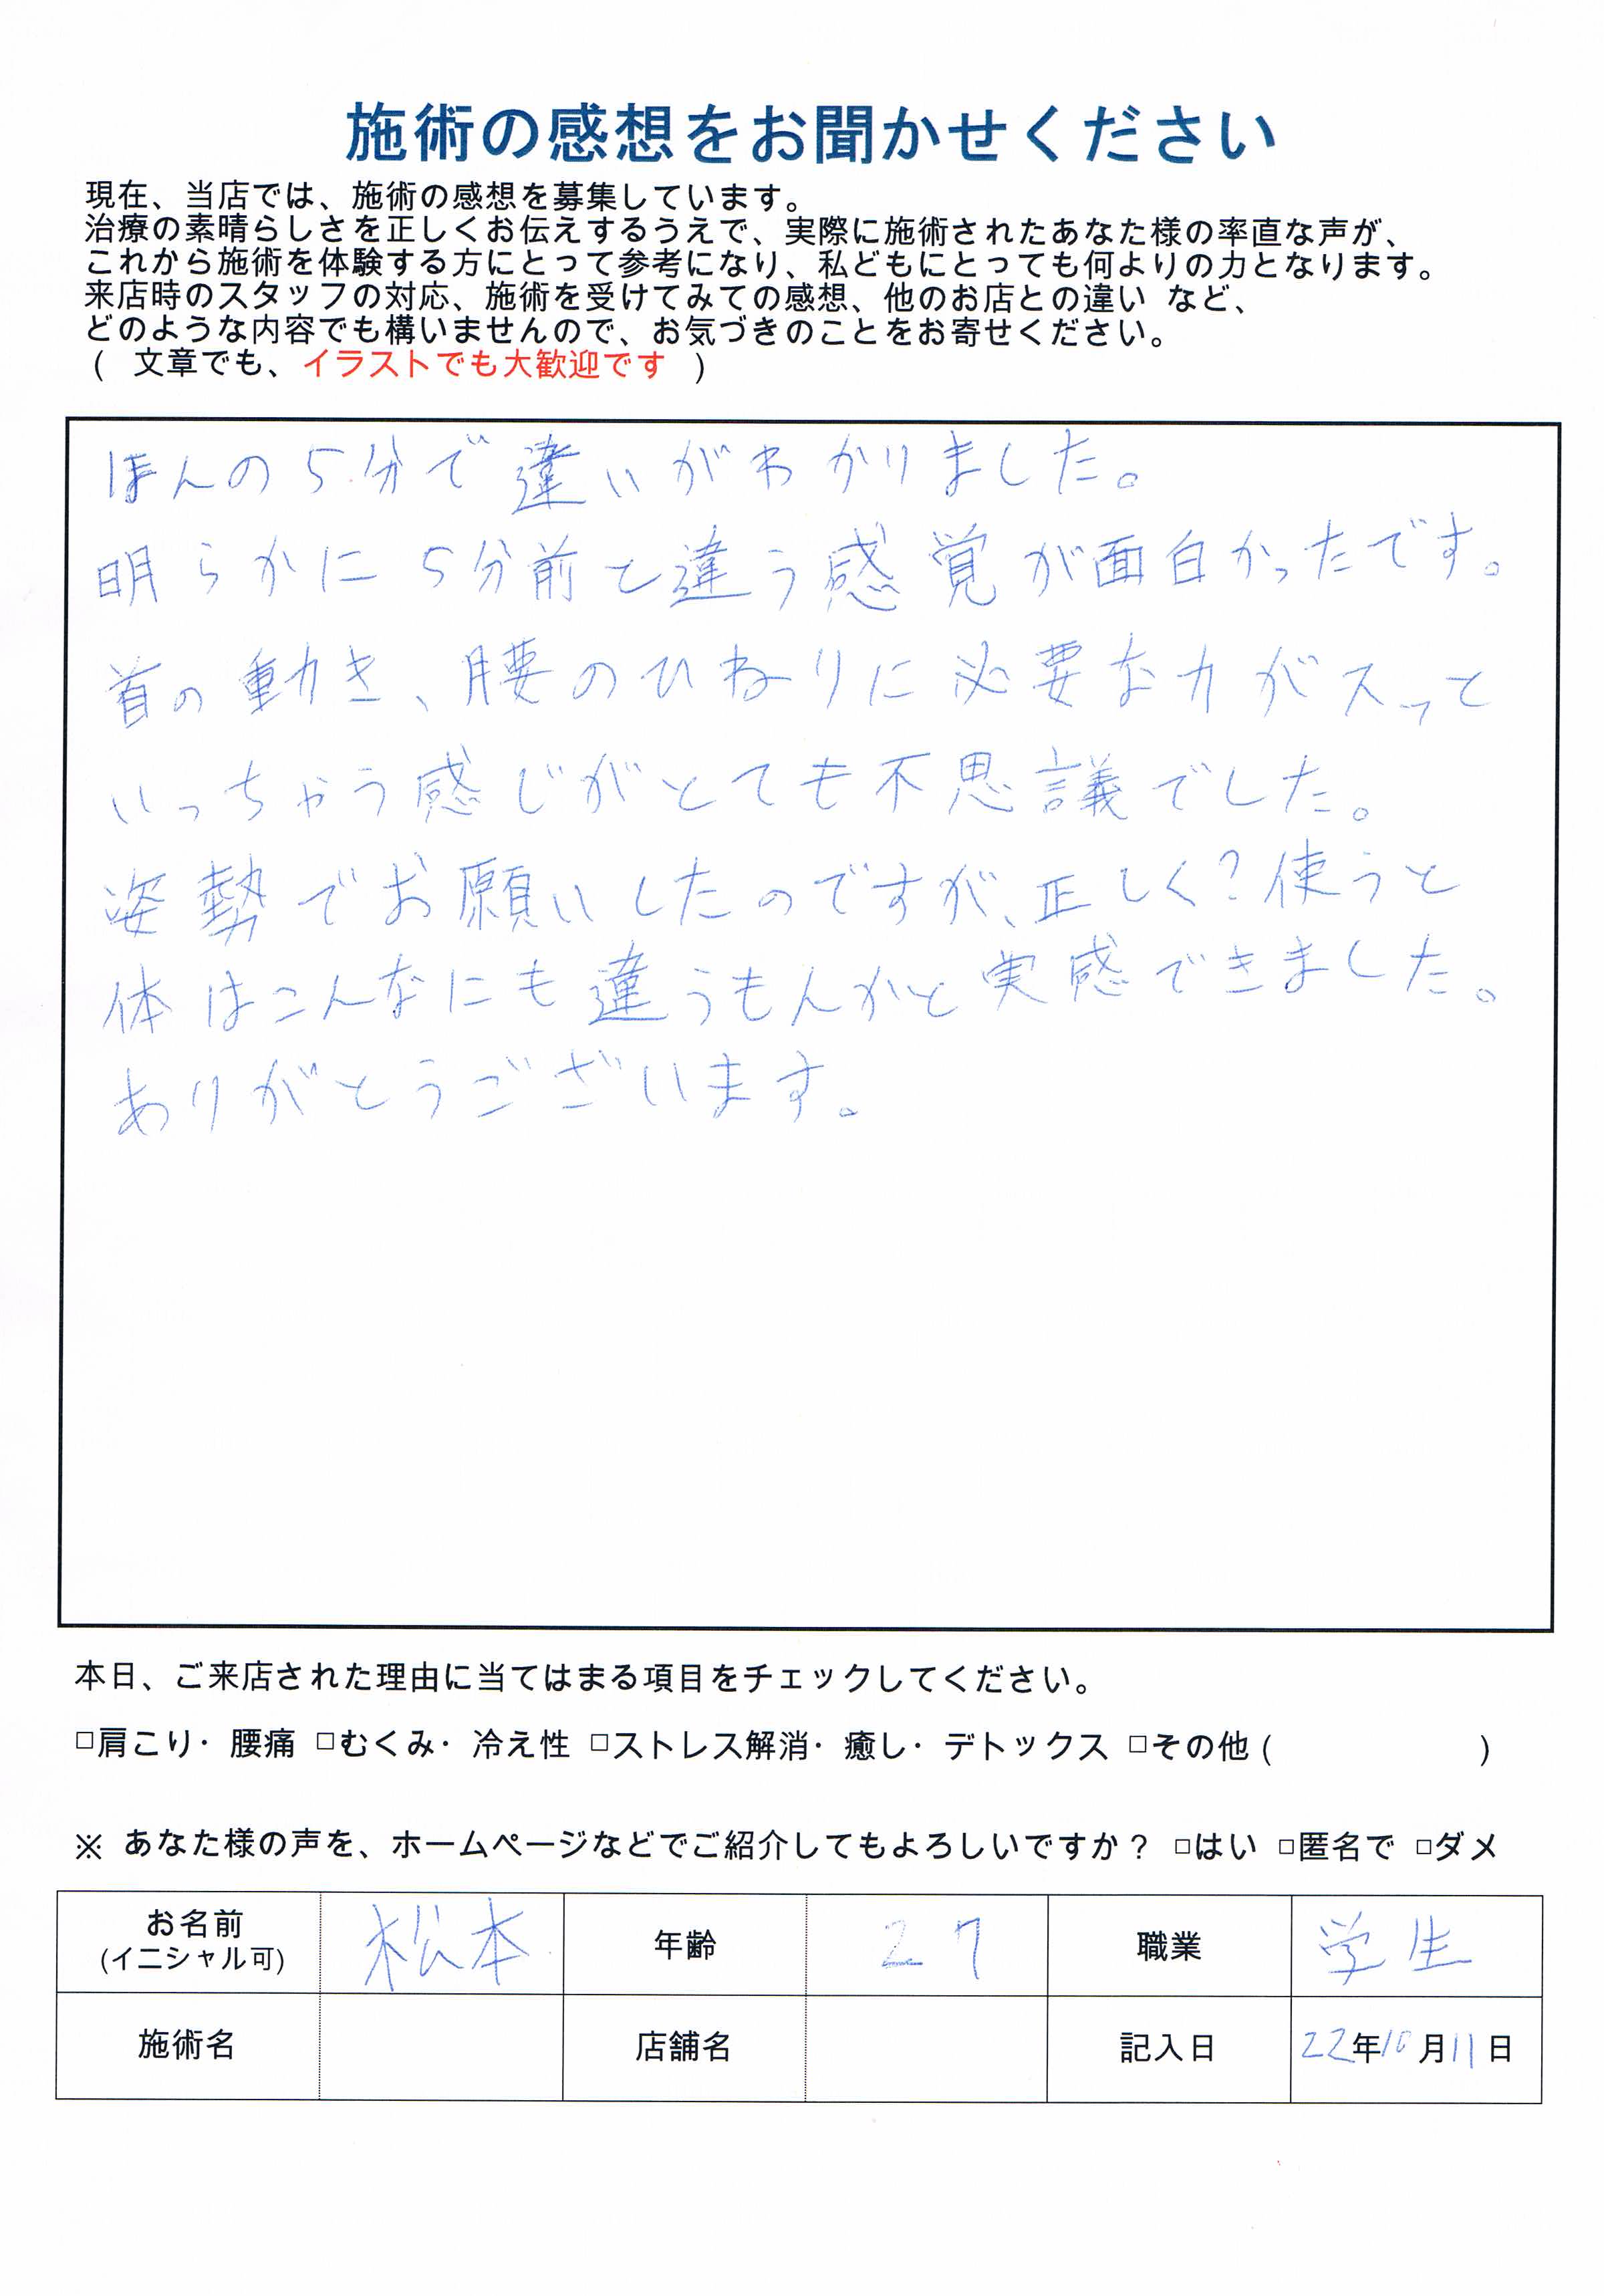 施術の感想をお聞かせください
現在、当店では、施術の感想を募集しています。
治療の素晴らしさを正しくお伝えするうえで、実際に施術されたあなた様の率直な声が、
これから施術を体験する方にとって参考になり、私どもにとっても何よりの力となります。
来店時のスタッフの対応、施術を受けてみての感想、他のお店との違い など、
どのような内容でも構いませんので、お気づきのことをお寄せください。
( 文章でも、イラストでも大歓迎です )
ほんの5分で違いがわかりました。
明らかに5分前と違う感覚が面白かったです。
首の動き、腰のひねりに必要な力がスッと
いっちゃう感じがとても不思議でした。
姿勢でお願いしたのですが、正しく?使うと
体はこんなにも違うもんかと実感できました。
ありがとうございます。
本日、ご来店された理由に当てはまる項目をチェックしてください。
□肩こり・腰痛 □むくみ・冷え性 □ストレス解消・癒し・デトックス □その他 ( )
※ あなた様の声を、ホームページなどでご紹介してもよろしいですか? □はい □匿名で □ダメ
お名前 (イニシャル可) 松本 年齢 27 職業 学生
施術名 店舗名 記入日 22年10月11日